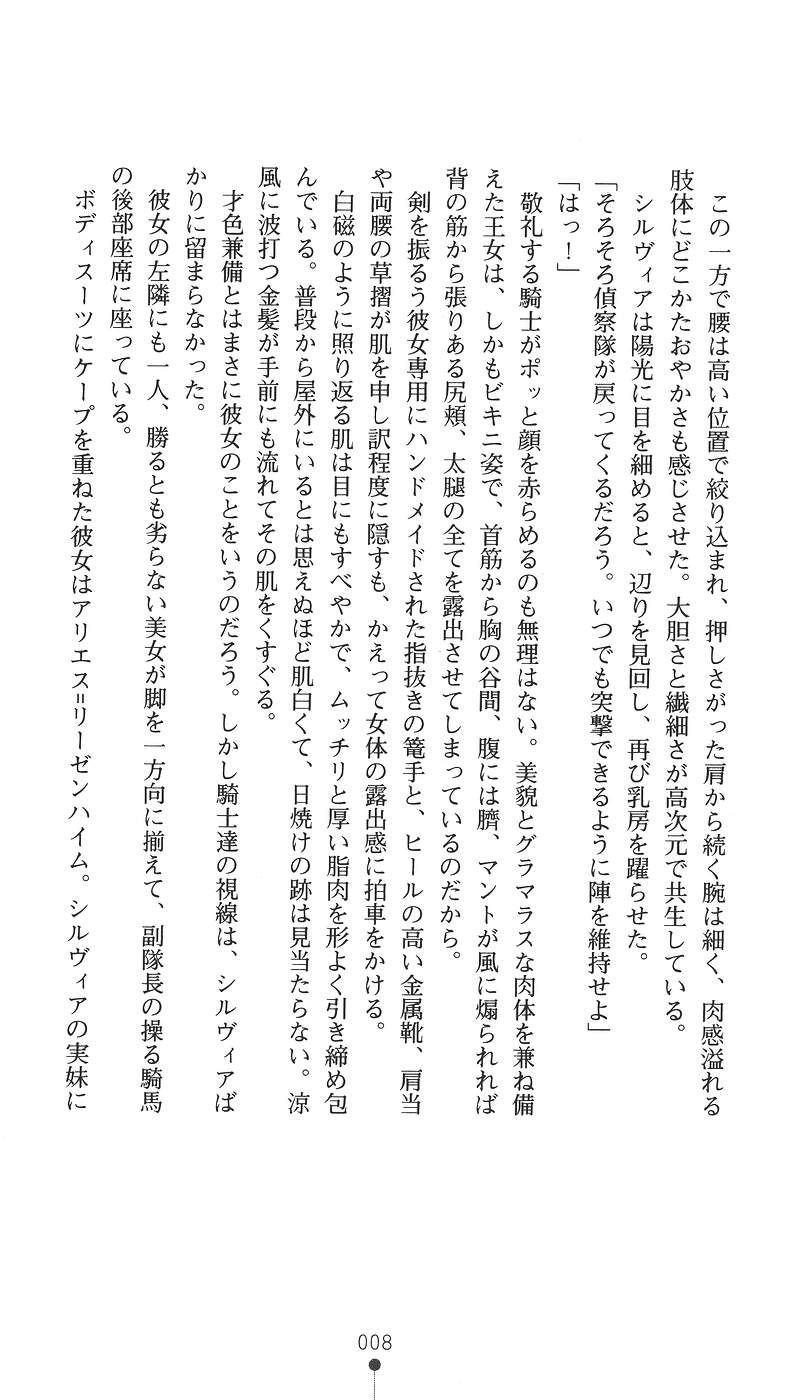 この一方で腰は高い位置で絞り込まれ、押しさがった肩から続く腕は細く、肉感溢れる
肢体にどこかたおやかさも感じさせた。大胆さと繊細さが高次元で共生している。
シルヴィアは陽光に目を細めると、辺りを見回し、再び乳房を躍らせた。
「そろそろ偵察隊が戻ってくるだろう。いつでも突撃できるように陣を維持せよ」
「はっ！」
敬礼する騎士がポッと顔を赤らめるのも無理はない。美貌とグラマラスな肉体を兼ね備
えた王女は、しかもビキニ姿で、首筋から胸の谷間、腹には臍、マントが風に煽られれば
背の筋から張りある尻頬、太腿の全てを露出させてしまっているのだから。
剣を振るう彼女専用にハンドメイドされた指抜きの篭手と、ヒールの高い金属靴、肩当
や両腰の草摺が肌を申し訳程度に隠すも、かえって女体の露出感に拍車をかける。
白磁のように照り返る肌は目にもすべやかで、ムッチリと厚い脂肉を形よく引き締め包
んでいる。普段から屋外にいるとは思えぬほど肌白くて、日焼けの跡は見当たらない。涼
風に波打つ金髪が手前にも流れてその肌をくすぐる。
才色兼備とはまさに彼女のことをいうのだろう。しかし騎士達の視線は、シルヴィアば
かりに留まらなかった。
彼女の左隣にも一人、勝るとも劣らない美女が脚を一方向に揃えて、副隊長の操る騎馬
の後部座席に座っている。
ボディスーツにケープを重ねた彼女はアリエス＝リーゼンハイム。シルヴィアの実妹に
008